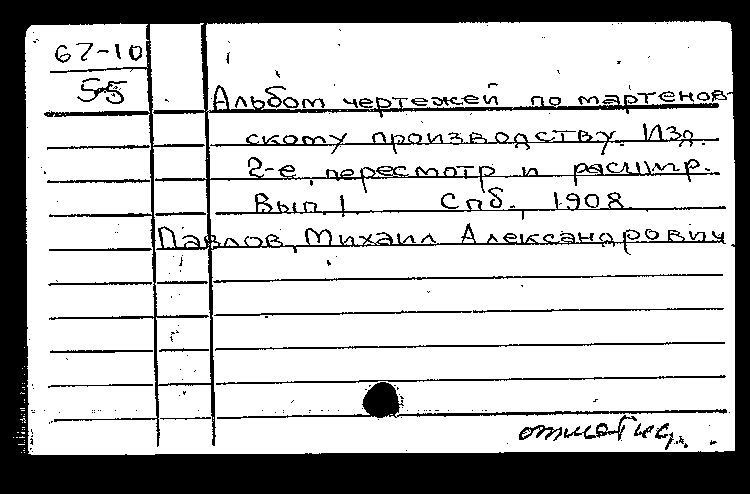 67-10
55
Альбом чертежей по мартенов-
скому производству. Изд.
2-е, пересмотр и расшир.
Вып. 1 Спб., 1908.
Павлов, Михаил Александрович.